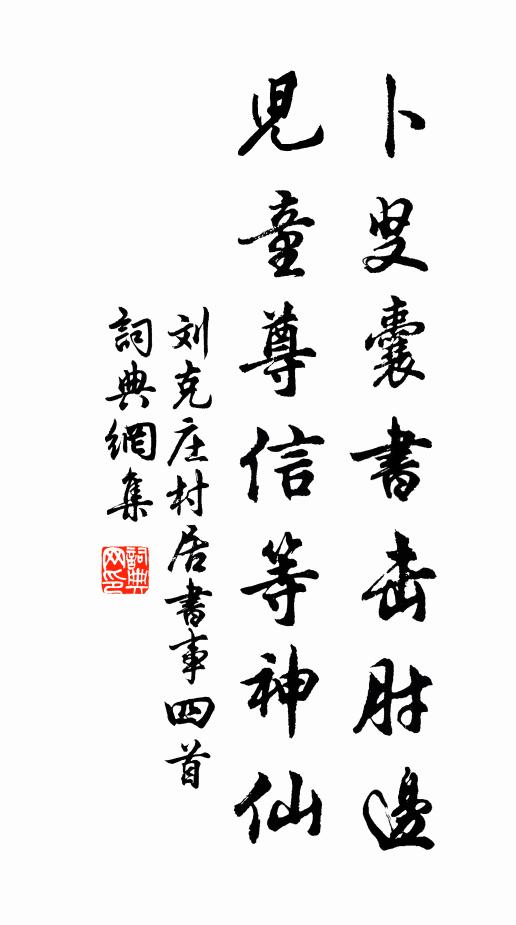 卜叟囊書出肘邊
兒童尊信等神仙
刘克庄村居書事四首
詞典網集
詞典網印